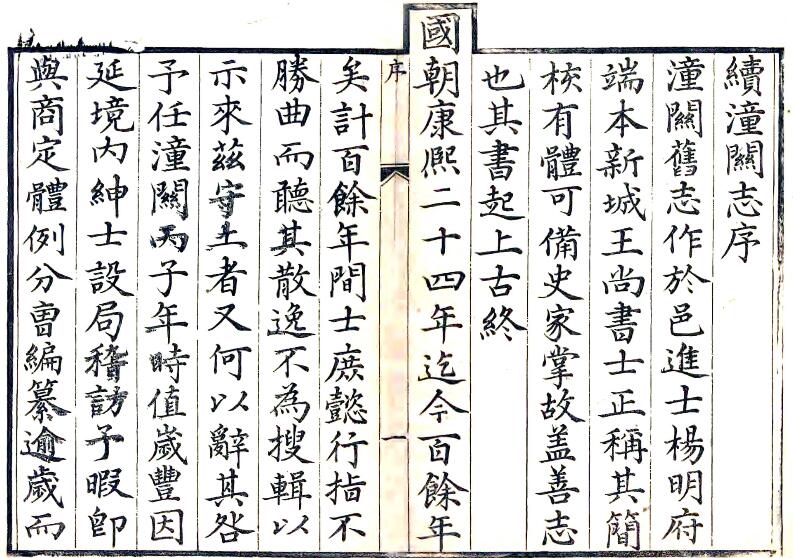 續潼關志序
潼關舊志作於邑進士楊明府
端本新城王尚書士正稱其簡
核有體可備史家掌故盖善志
也其書起上古終
國朝康熙二十四年迄今百餘年
序
一
矣計百餘年間士庶懿行指不
勝曲而聽其散逸不為搜輯以
示來茲守土者又何以辭其咎
予任潼關丙子年時值歲豐因
延境内紳士設局稽訪予暇卽
與商定體例分曹編纂逾歲而